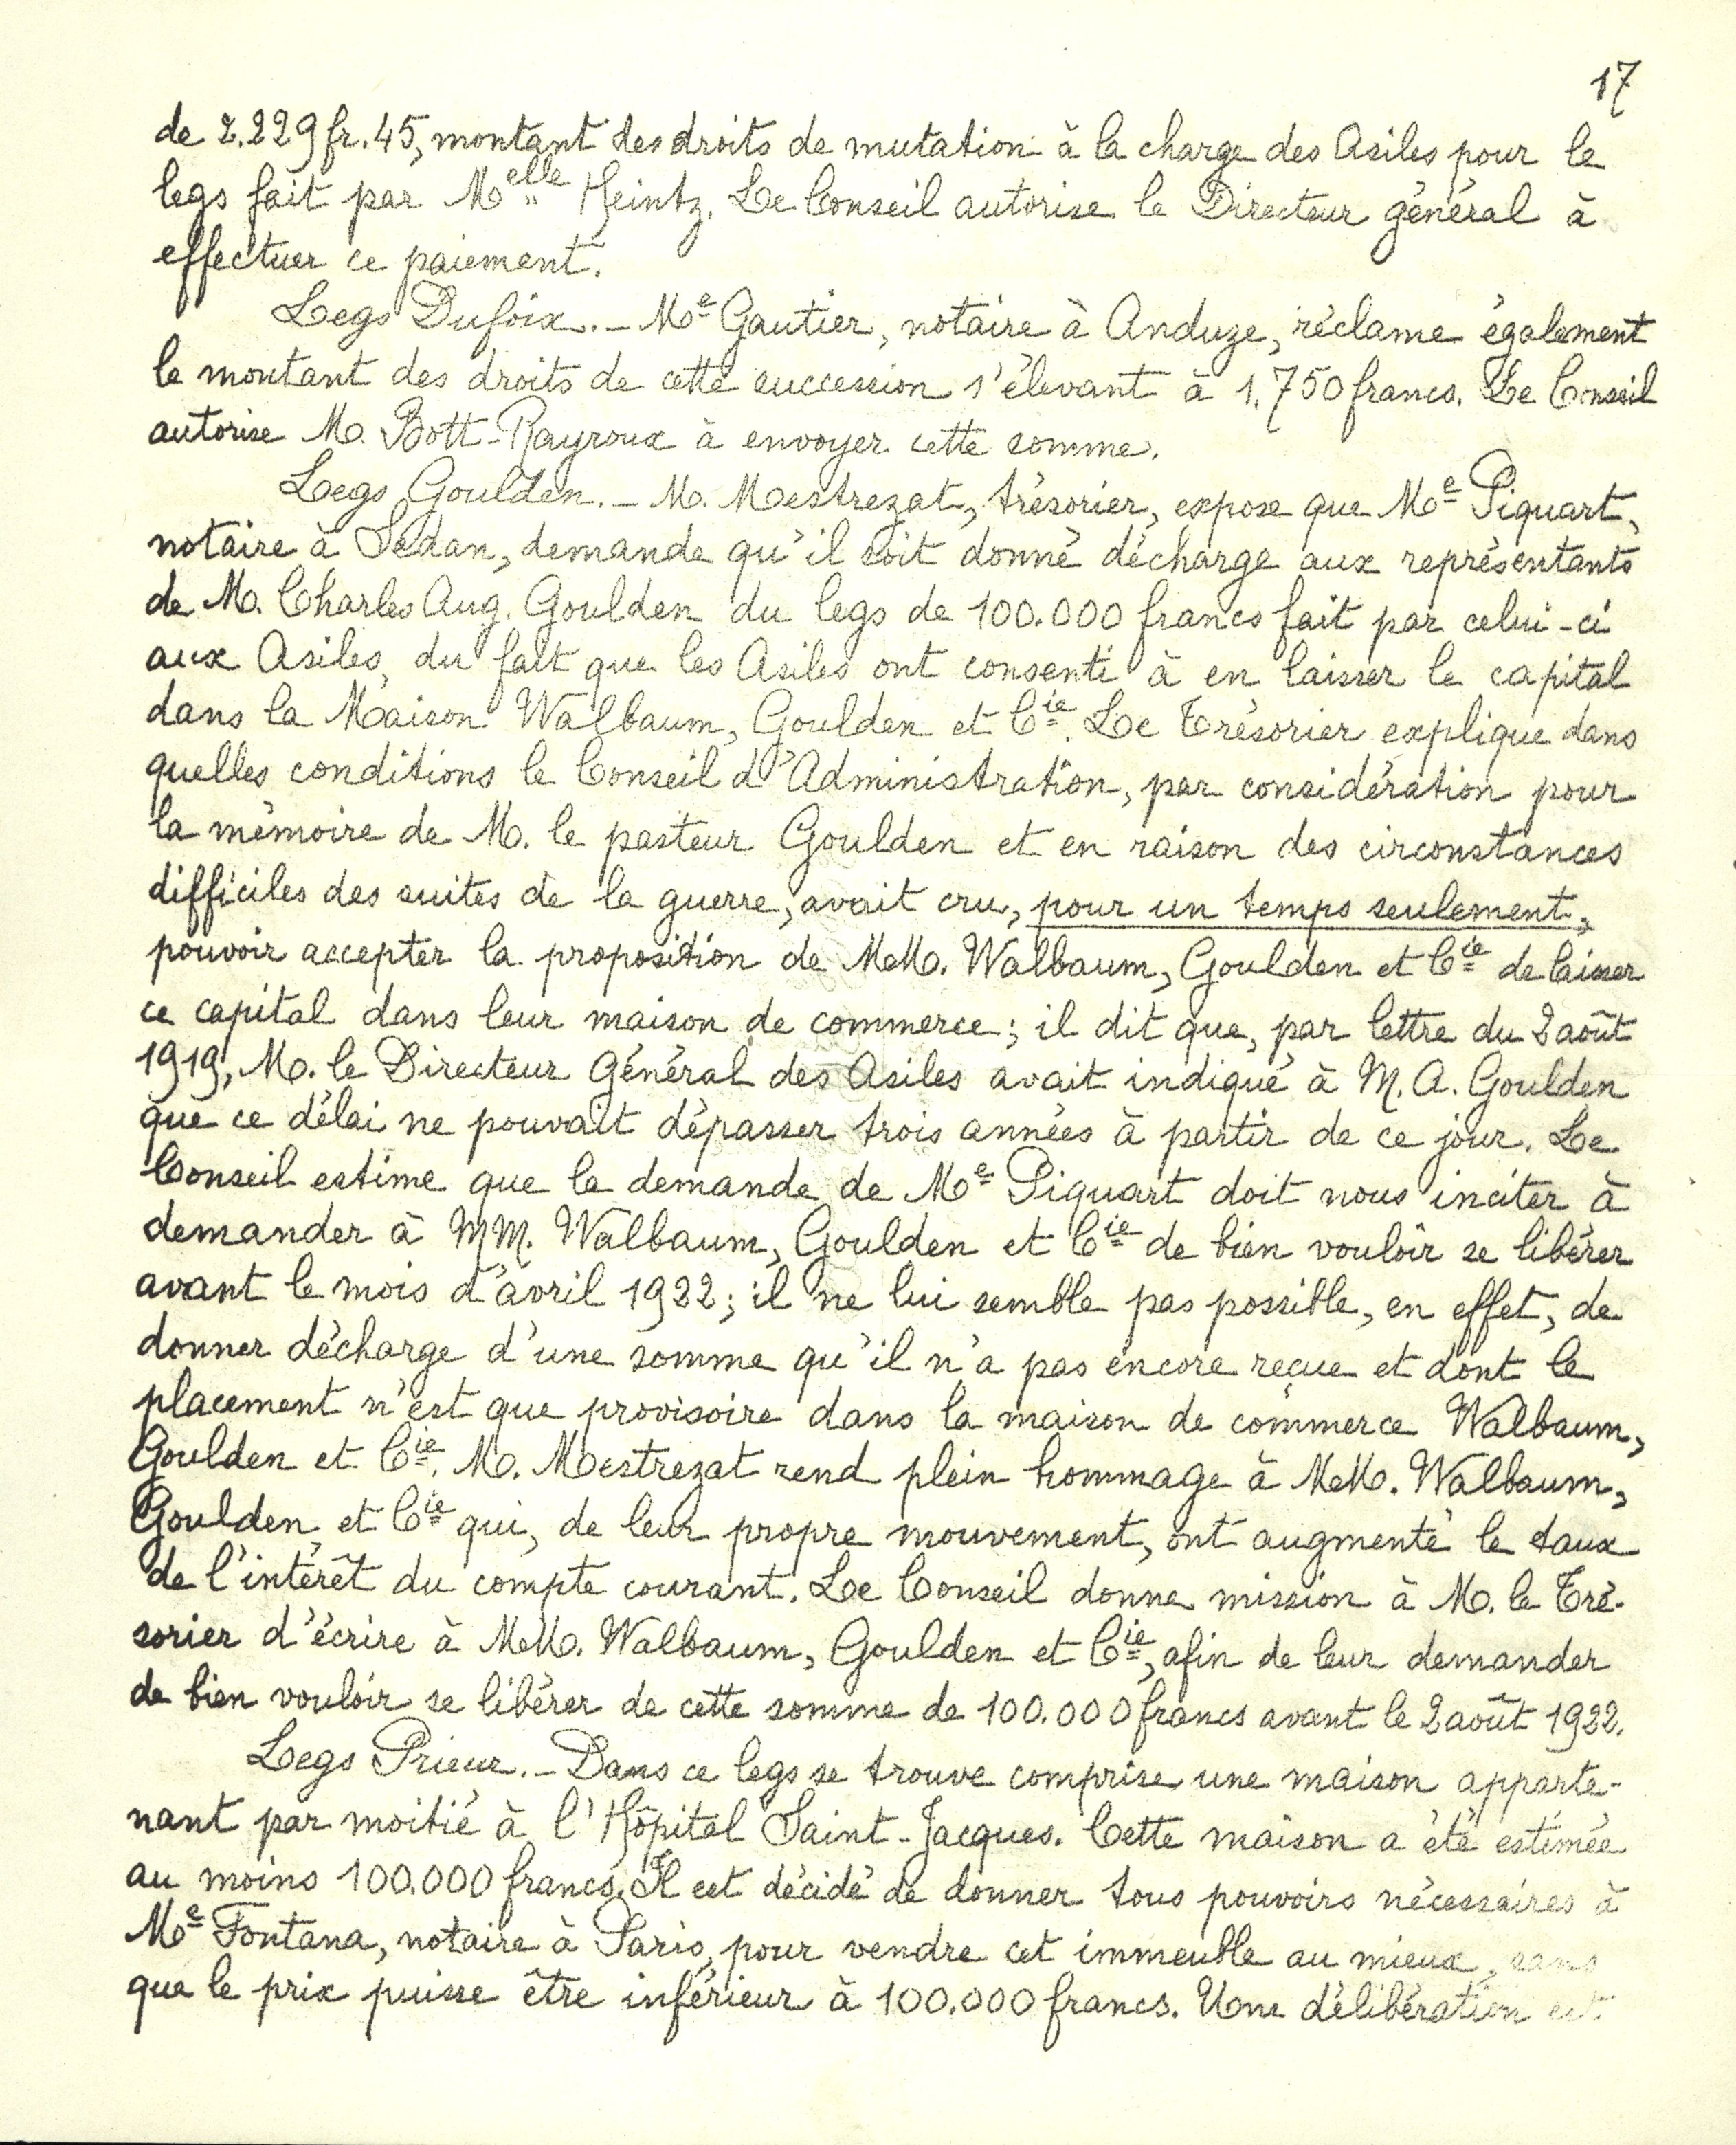 17
de 2.229 fr. 45, montant des droits de mutation à la charge des Asiles pour le
legs fait par Melle Heintz. Le Conseil autorise le Directeur général à
effectuer ce paiement.
Legs Dufoix. – Me Gautier, notaire à Anduze, réclame également
le montant des droits de cette succession s'élevant à 1.750 francs. Le Conseil
autorise M. Bott-Rayroux à envoyer cette somme.
Legs Goulden. – M. Mestrezat, trésorier, expose que Me Piquart,
notaire à Sedan, demande qu'il soit donné décharge aux représentants
de M. Charles Aug. Goulden du legs de 100.000 francs fait par celui-ci
aux Asiles, du fait que les Asiles ont consenti à en laisser le capital
dans la Maison Walbaum, Goulden et Cie. Le Trésorier explique dans
quelles conditions le Conseil d'Administration, par considération pour
la mémoire de M. le pasteur Goulden et en raison des circonstances
difficiles des suites de la guerre, avait cru, pour un temps seulement,
pouvoir accepter la proposition de MM. Walbaum, Goulden et Cie de laisser
ce capital dans leur maison de commerce ; il dit que, par lettre du 2 août
1919, M. le Directeur Général des Asiles avait indiqué à M. A. Goulden
que ce délai ne pouvait dépasser trois années à partir de ce jour. Le
Conseil estime que la demande de Me Piquart doit nous inciter à
demander à MM. Walbaum, Goulden et Cie de bien vouloir se libérer
avant le mois d'avril 1922 ; il ne lui semble pas possible, en effet, de
donner décharge d'une somme qu'il n'a pas encore reçue et dont le
placement n'est que provisoire dans la maison de commerce Walbaum,
Goulden et Cie. M. Mestrezat rend plein hommage à MM. Walbaum,
Goulden et Cie qui, de leur propre mouvement, ont augmenté le taux
de l'intérêt du compte courant. Le Conseil donne mission à M. le Tré-
sorier d'écrire à MM. Walbaum, Goulden et Cie, afin de leur demander
de bien vouloir se libérer de cette somme de 100.000 francs avant le 2 août 1922.
Legs Prieur. – Dans ce legs se trouve comprise une maison apparte-
nant par moitié à l'Hôpital Saint-Jacques. Cette maison a été estimée
au moins 100.000 francs. Il est décidé de donner tous pouvoirs nécessaires à
Me Fontana, notaire à Paris, pour vendre cet immeuble au mieux, sans
que le prix puisse être inférieur à 100.000 francs. Une délibération est